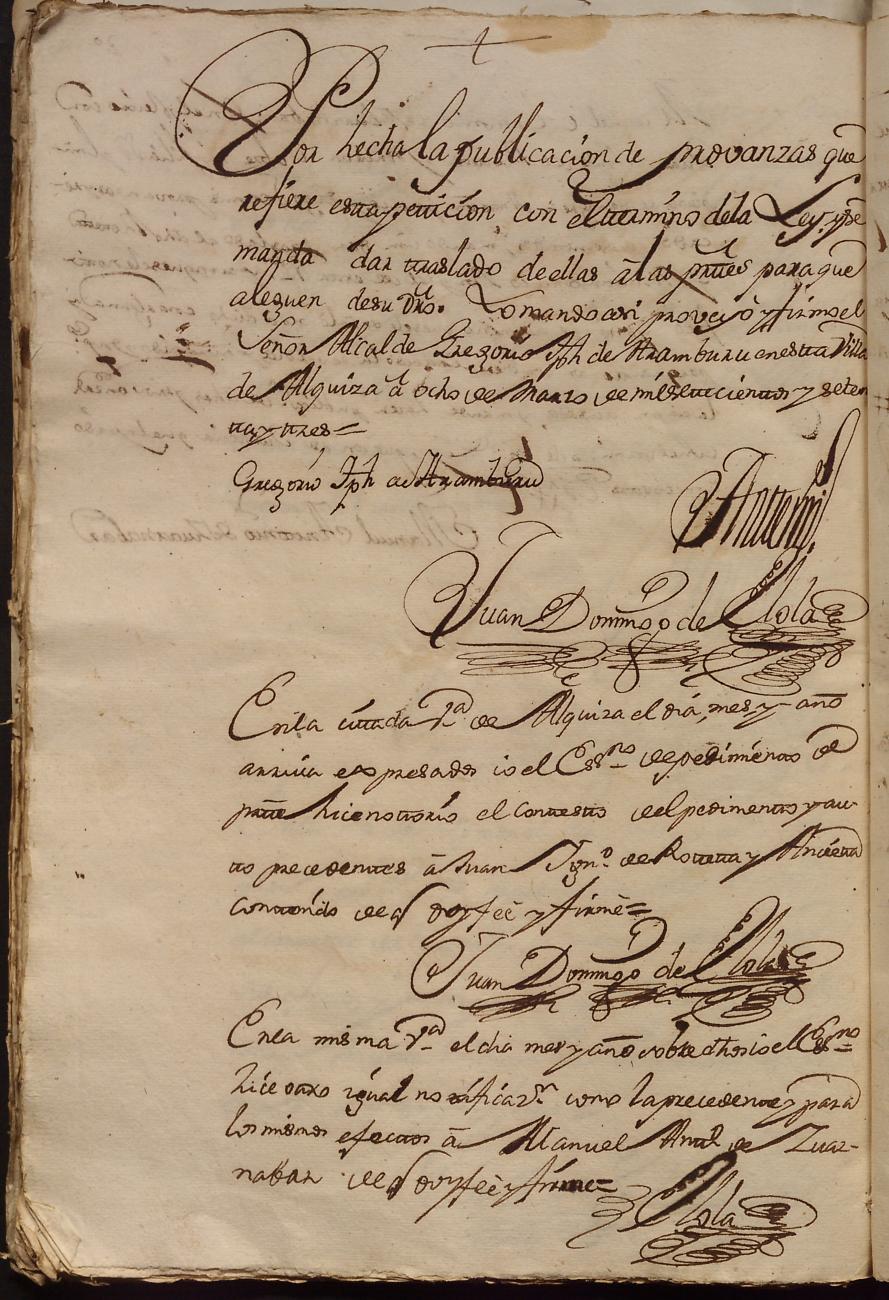 Por hecha la publicacion de provanzas que
refiere esta peticion con el termino dela Ley, y se
manda dar traslado de ellas â las ptes para que
aleguen de su dro. Lo mando asi proveiò y firmo el
Señor Alcalde Gregorio Jph de Aramburu en esta Villa
de Alquiza â ocho de Marzo de mil setecientos y seten
ta y tres=
Gregorio Jph de Aramburu
Antemi
Juan Domingo de
En la citada Va de Alquiza el dia, mes, y año
arriva expresados io el Essno de pedimento de
parte hice notorio el contesto del pedimento y au-
to precedentes â Juan Ignº de Rotteta y Ancieta
contenido de q doy feè y firmè=
Juan Domingo de
En la misma Va el dia mes y año sobre dhos io el Essno
hice otro igual notificazn como la precedente y para
los mismos efectos â Manuel Antº de Zuaz-
nabar de q doy feè y firme=